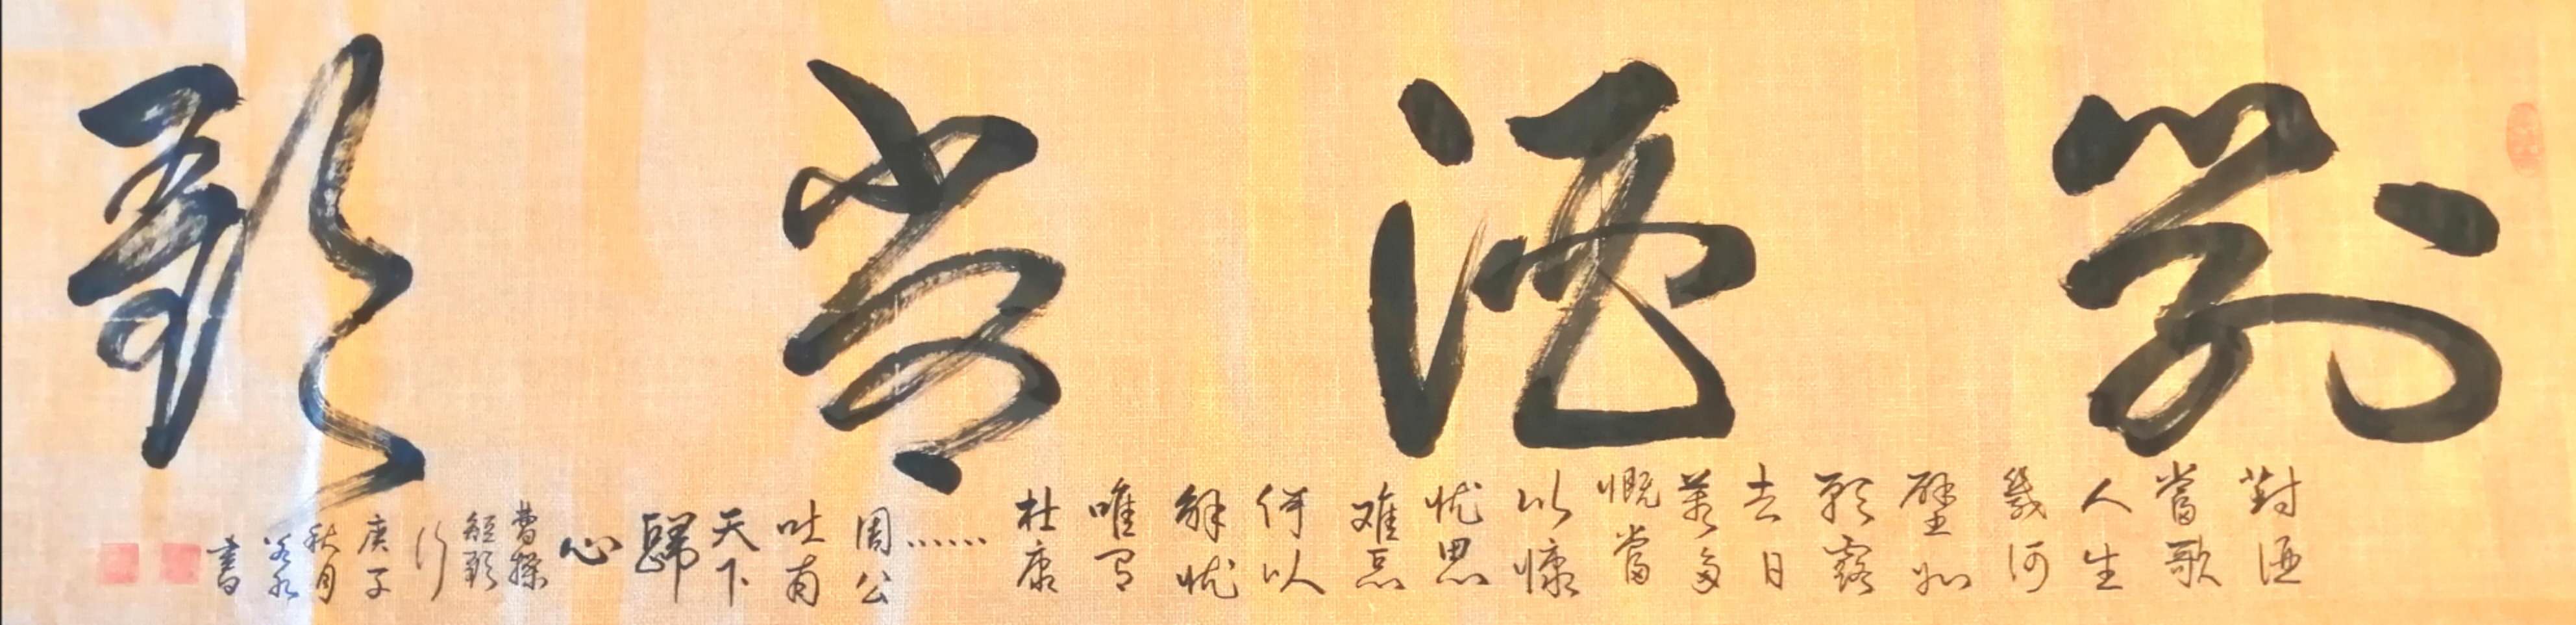 對酒當歌
對酒
當歌
人生
幾何
壁如
朝露
去日
苦多
慨當
以慷
忧思
难忘
何以
解忧
唯有
杜康
……
周公
吐甫
天下
歸
心
曹操
短歌
行
庚子
秋月
若水
書